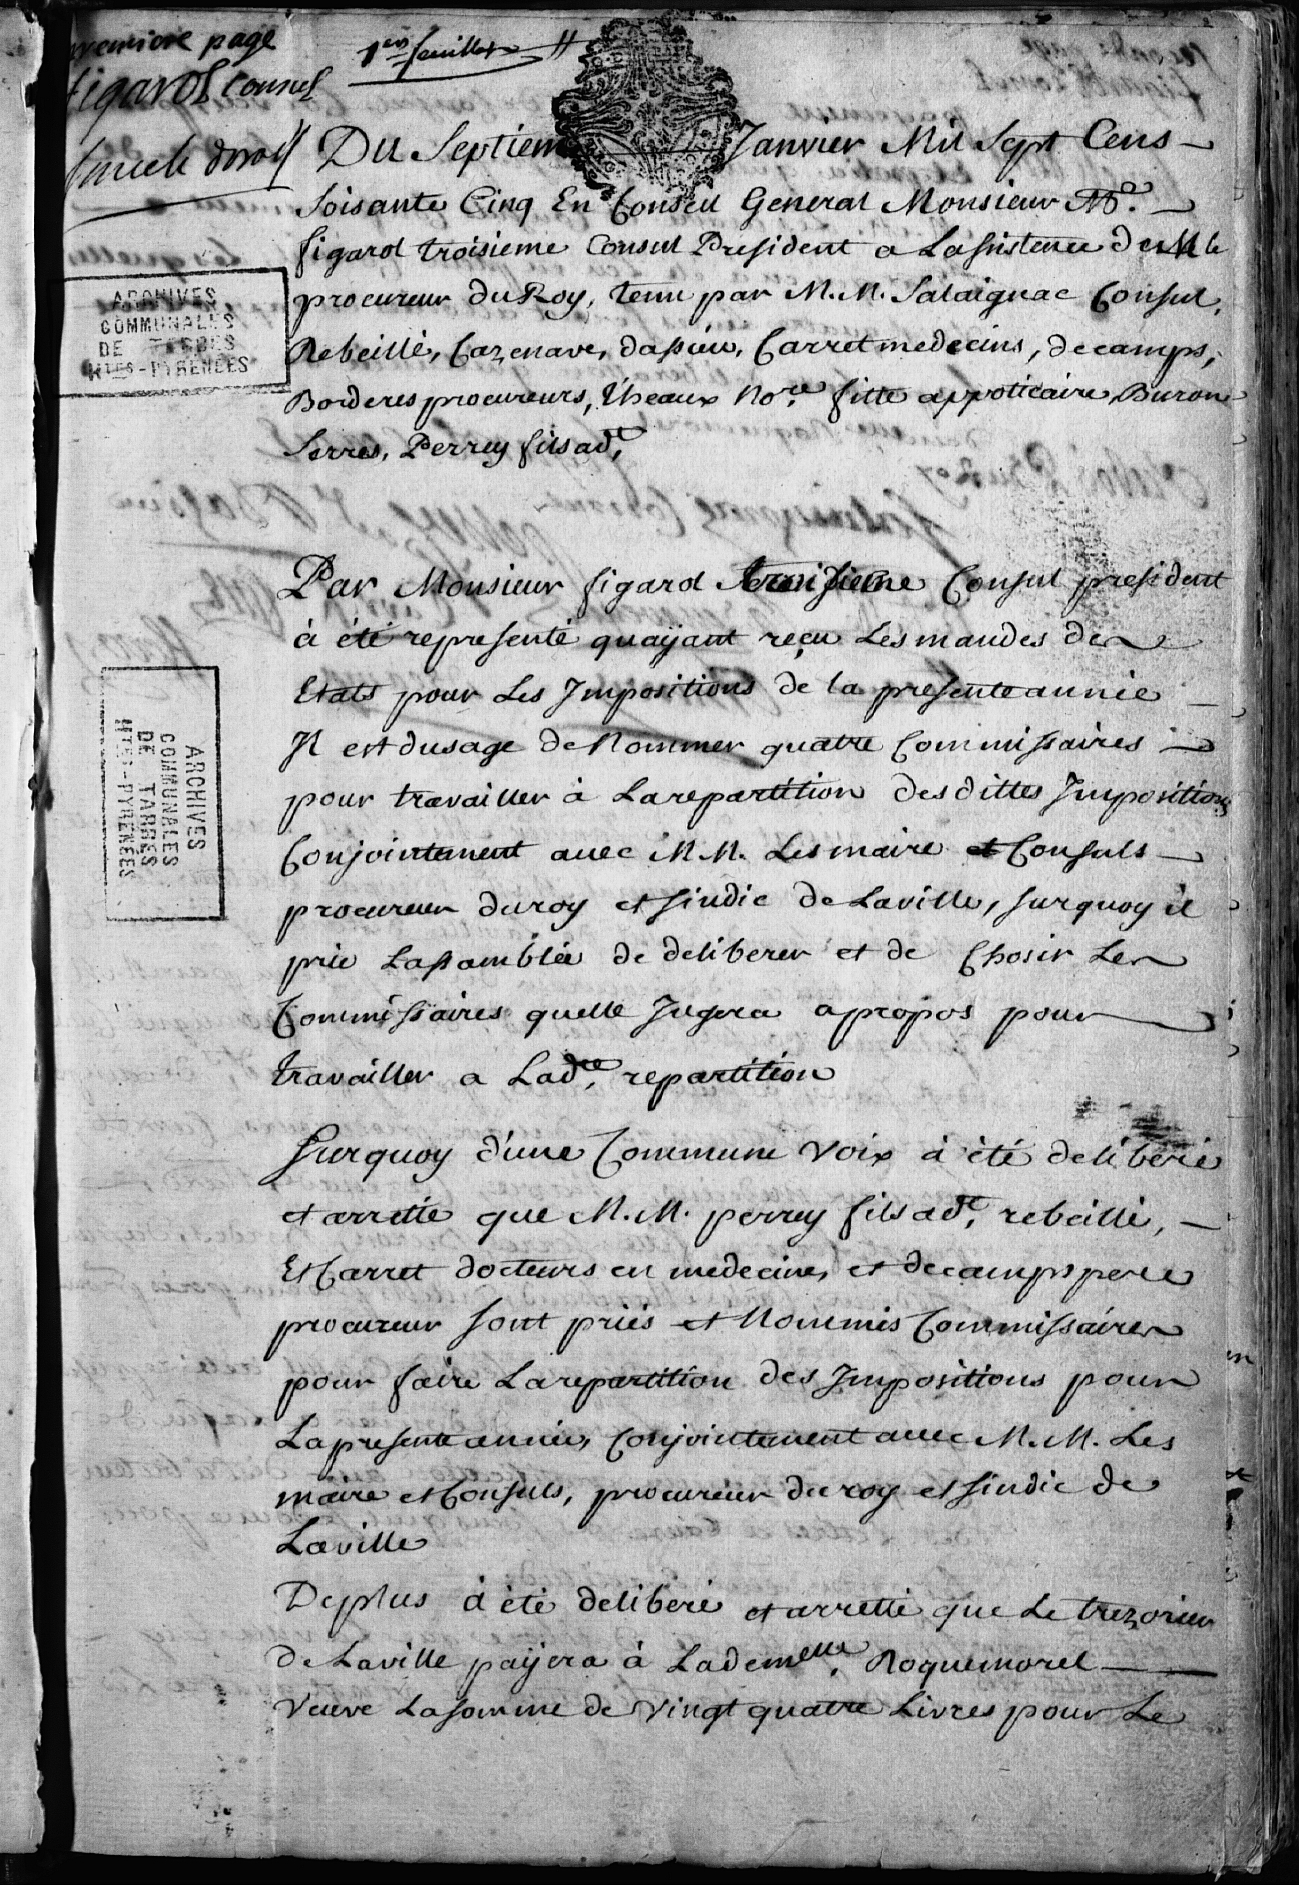 premiere page
figarol Consul
1er feuillet
Du Septiem Janvier Mil Sept Cens
Soisante Cinq En Conseil General Monsieur Me.
figarol troisieme Consul President a Lassistence de M le
procureur du Roy, tenu par M.M. Salaignac Consul,
Rebeille, Cazenave, dassieu, Carret medecins, decamps,
Borderes procureurs, Theaux Nore. fitte appoticaire, Buron
Serres, Perrey fils ade.
ARCHIVES
COMMUNALES
DE TARBES
HTES-PYRENÉES
Par Monsieur figarol troisieme Consul president
à été representé quaÿant reçu Les mandes des
Etats pour Les Impositions de la presente année
Il est dusage de Nommer quatre Commissaires
pour travailler à La repartition des dittes Impositions
Conjointement avec M.M. Les maire et Consuls
procureur du roy et sindic de Laville, surquoy il
prie Lassamblée de deliberer et de Chosir Les
Commissaires quelle Jugera apropos pour
travailler a Ladte. repartition
ARCHIVES
COMMUNALES
DE TARBES
HTES-PYRENÉES
Surquoy d'une Commune Voix à été deliberé
et arretté que M.M. perrey fils ade. rebeille,
Et Carret docteurs en medecine, et decamps pere
procureur sont priés et Nommés Commissaires
pour faire La repartition des Impositions pour
La presente année, Conjointement avec M.M. Les
maire et Consuls, procureur du roy et sindic de
Laville
Deplus à été deliberé et arretté que Le trezorier
de Laville paÿera à Lademelle. Roquemorel
Veuve La somme de Vingt quatre Livres pour Le